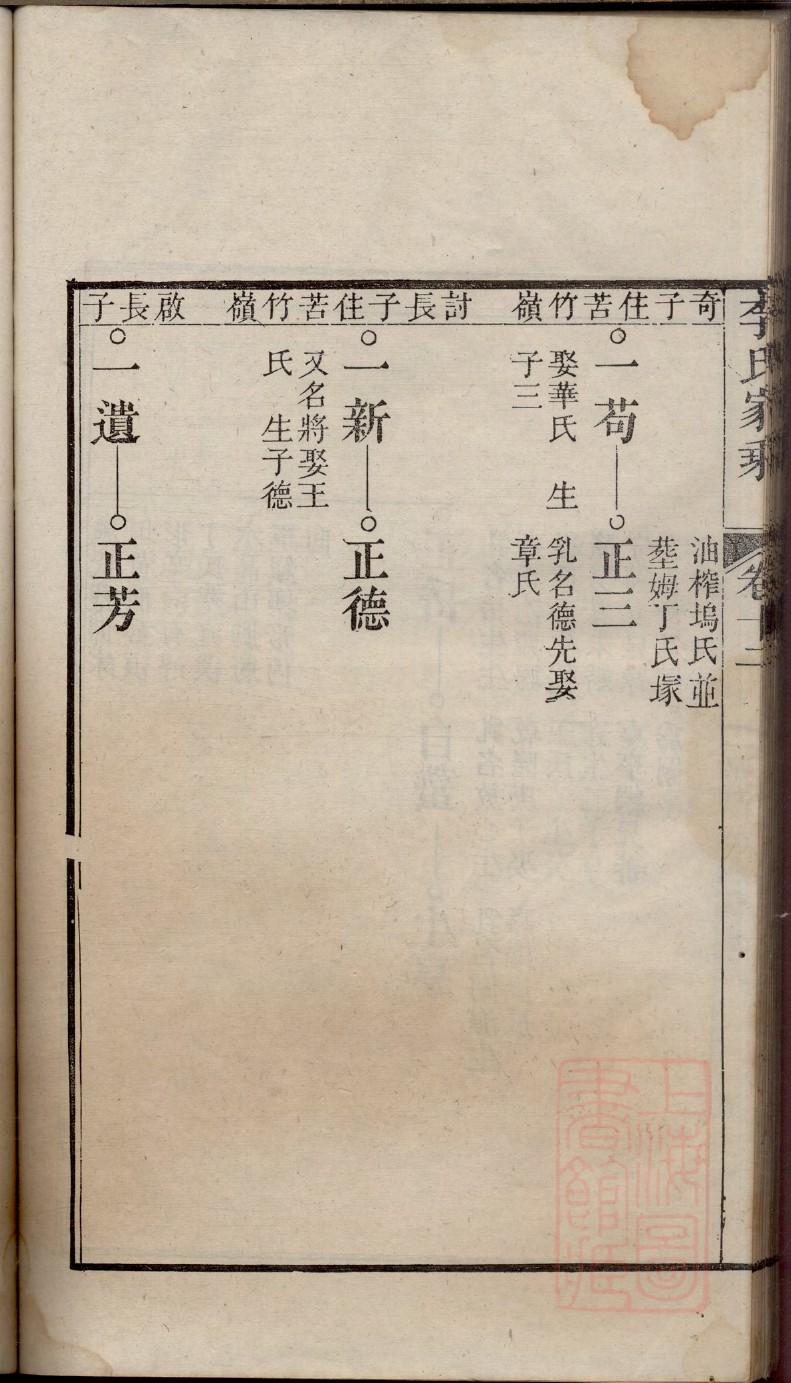 李氏家乘 卷十二
奇子住苦竹嶺
討長子住苦竹嶺
啟長子
油榨塢氏並
塟姆丁氏塚
一苟 正三
娶華氏 生 乳名德先娶
子三 章氏
一新 正德
又名將娶王
氏 生子德
一遺 正芳
上海圖
書館藏